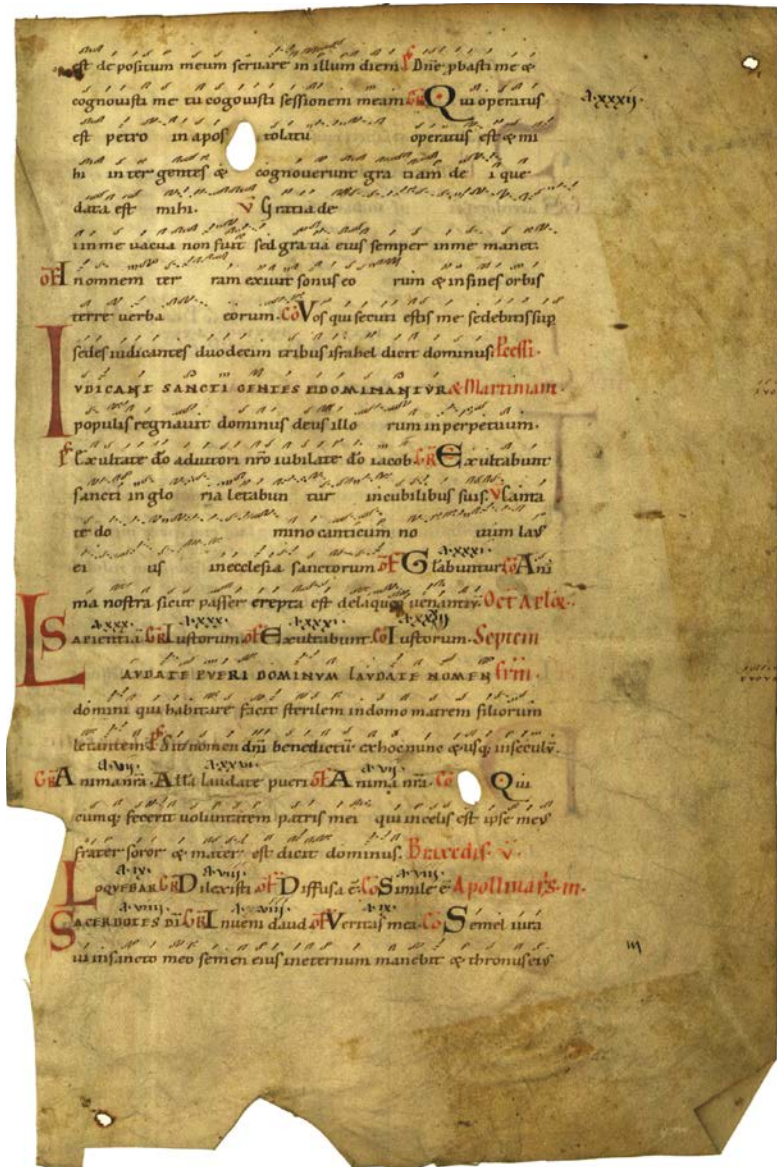 est depositum meum servare in illum diem. Ps Dñe pbasti me &
cognovisti me tu cogovisti sessionem meam. GR Qui operatus
A xxxii.
est petro in apos tolatu operatus est & mi
hi inter gentes & cognoverunt gra tiam de i que
data est mihi. V Gratia de
i in me vacua non fuit sed gratia eius semper in me manet.
OF In omnem ter ram exivit sonus eo rum & in fines orbis
terre verba eorum. CO Vos qui secuti estis me sedebitis sup
sedes iudicantes duodecim tribus israhel dicit dominus. Pcessi.
IUDICANT SANCTI GENTES & DOMINANTUR & Martiniani.
populis regnavit dominus deus illo rum in perpetuum.
Ps Exultate do adiutori nro iubilate do iacob. GR Exultabunt
sancti in glo ria letabun tur in cubilibus suis. V Canta
te do mino canticum no vum laus
A xxxi.
ei us in ecclesia sanctorum. OF Glabuntur CO Ani
ma nostra sicut passer erepta est de laqueo venantiu. Oct Aplor.
A xxx. A xxx. A xxxi. A xxxii
SAPIENTIA GR Iustorum. OF Exultabunt. CO Iustorum. Septem
LAUDATE PUERI DOMINUM LAUDATE NOMEN frm.
domini qui habitare facit sterilem in domo matrem filiorum
letantem. Ps Sit nomen dni benedictu exhoc nunc & usq; in seculu.
A vii. A xxvii. A vii.
GR Anima nra. Alla laudate pueri OF Anima nra. CO Qui
cumq; fecerit voluntatem patris mei qui in celis est ipse meus
frater soror & mater est dicit dominus. Brixedis. V.
A ix. A viii. A viii.
LOQUEBAR GR Dilexisti OF Diffusa e. CO Simile e Apollinaris. m.
A viii. A viii. A ix.
SACERDOTES DI. GR Inveni david OF Veritas mea. CO Semel iura
vi in sancto meo semen eius in eternum manebit & thronus eius